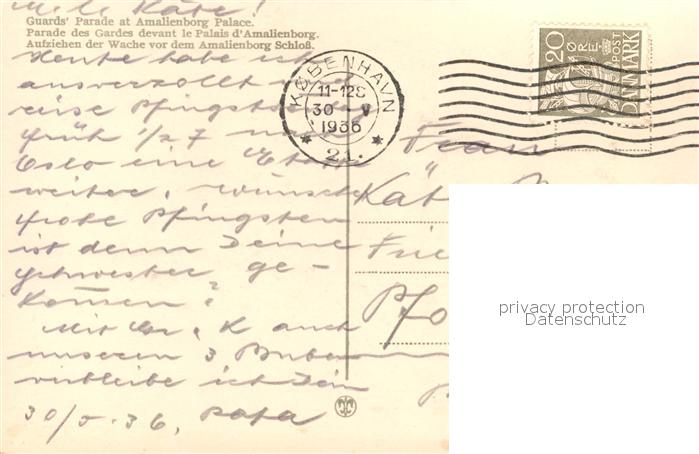 Käte!
Guards' Parade at Amalienborg Palace.
Parade des Gardes devant le Palais d'Amalienborg.
Aufziehen der Wache vor dem Amalienborg Schloß.
Heute habe ich
ausverzollt und
reise Pfingsttag
früh 1/2 7 nach
Oslo eine Etappe
weiter, wünsche
frohe Pfingsten
ist denn Deine
Schwester ge-
kommen?
Mit Gr. K auch
unseren 3 Buben
verbleibe ich Dein
30/5.36. Papa
KØBENHAVN
11-12S
30 V
1936
* 21. *
20 ØRE
POST
DANMARK
Frau
Kät
Frie
Pfo
privacy protection
Datenschutz